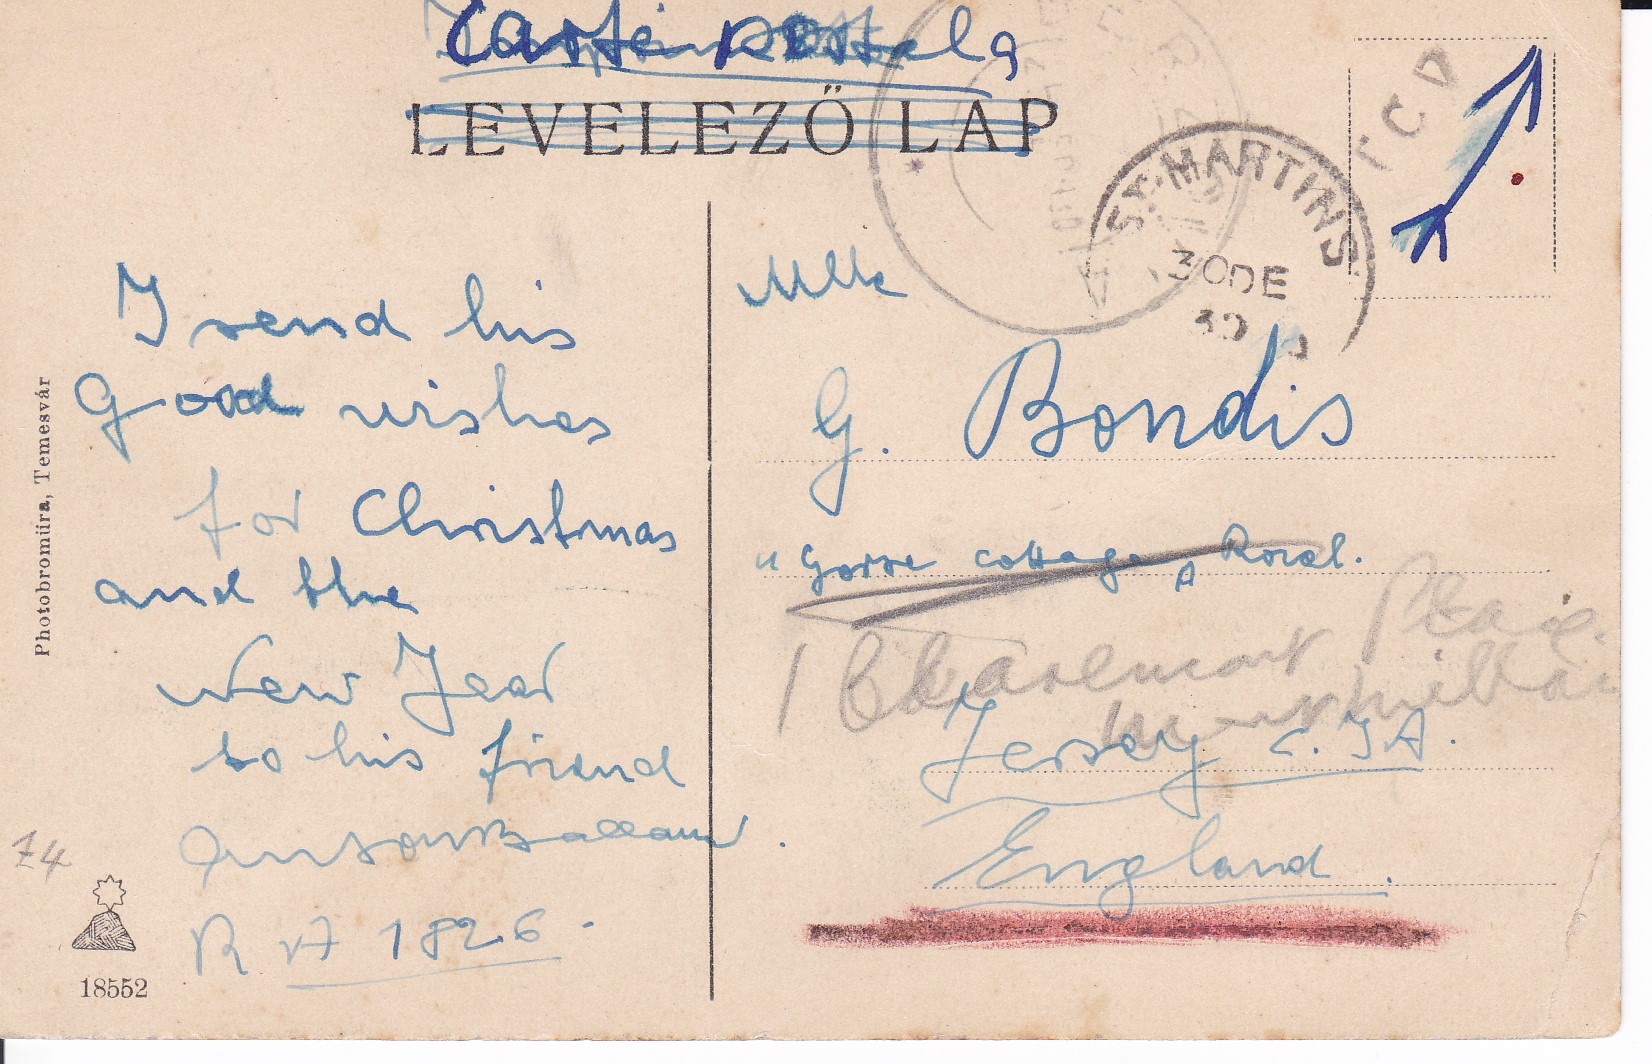 LEVELEZŐ LAP
TCV
ST. MARTINS
30 DE
30
I send his
Good wishes
for Christmas
and the
New Year
to his friend
R A 1826.
Mlle
G. Bondis
" Gorse cottage, A Road.
1 Claremont Place
Jersey C. I A.
England.
Photobromüra, Temesvár
Z4
18552